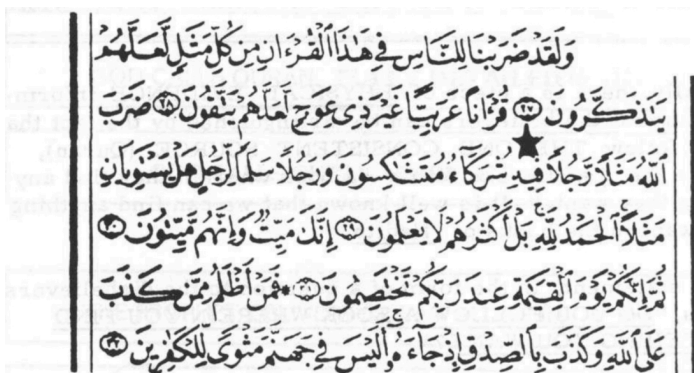 وَلَقَدْ ضَرَبْنَا لِلنَّاسِ فِي هَٰذَا ٱلْقُرْءَانِ مِن كُلِّ مَثَلٍ لَّعَلَّهُمْ
يَتَذَكَّرُونَ ٢٧ قُرْءَانًا عَرَبِيًّا غَيْرَ ذِي عِوَجٍ لَّعَلَّهُمْ يَتَّقُونَ ٢٨ ضَرَبَ
ٱللَّهُ مَثَلًا رَّجُلًا فِيهِ شُرَكَآءُ مُتَشَٰكِسُونَ وَرَجُلًا سَلَمًا لِّرَجُلٍ هَلْ يَسْتَوِيَانِ
مَثَلًا ٱلْحَمْدُ لِلَّهِ بَلْ أَكْثَرُهُمْ لَا يَعْلَمُونَ ٢٩ إِنَّكَ مَيِّتٌ وَإِنَّهُم مَّيِّتُونَ ٣٠
ثُمَّ إِنَّكُمْ يَوْمَ ٱلْقِيَٰمَةِ عِندَ رَبِّكُمْ تَخْتَصِمُونَ ٣١ * فَمَنْ أَظْلَمُ مِمَّن كَذَبَ
عَلَى ٱللَّهِ وَكَذَّبَ بِٱلصِّدْقِ إِذْ جَآءَهُۥٓ أَلَيْسَ فِي جَهَنَّمَ مَثْوًى لِّلْكَٰفِرِينَ ٣٢